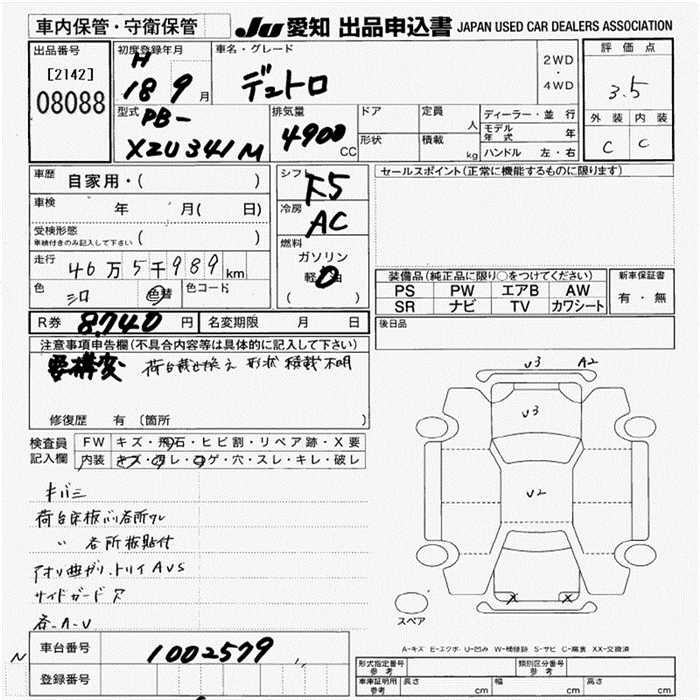 車内保管・守衛保管
JU 愛知 出品申込書 JAPAN USED CAR DEALERS ASSOCIATION
出品番号
[2142]
08088
初度登録年月
H
18 9 月
車名・グレード
デュトロ
2WD
・
4WD
評価点
3.5
外装 内装
C C
型式
PB-
XZU341M
排気量
4900 CC
ドア
形状
定員 人
積載 kg
ディーラー・並行
モデル年式 年
ハンドル 左・右
車歴 自家用・( )
車検 年 月( 日)
受検形態
車検付きのみ記入して下さい ( )
走行 46万5千989 km
色 シロ 色替 色コード
シフト F5
冷房 AC
燃料
ガソリン
軽油
( )
セールスポイント(正常に機能するものに限ります)
装備品(純正品に限り○をつけてください)
PS PW エアB AW
SR ナビ TV カワシート
新車保証書
有・無
後日品
R券 8,740 円 名変期限 月 日
注意事項申告欄(不具合内容等は具体的に記入して下さい)
要構変 荷台載せ換え 形状 積載不明
修復歴 有 (箇所 )
検査員
記入欄
FW キズ・飛石・ヒビ割・リペア跡・X要
内装 キズ・ヨレ・コゲ・穴・スレ・キレ・破レ
キバミ
荷台床板バリ各所ワレ
〃 各所板貼付
アオリ曲ガリ、トリイAUS
サイドガードア
各-A-U
U3 A2
U3
U2
X X
スペア
A-キズ E-エクボ U-凹み W-補修跡 S-サビ C-腐食 XX-交換済
N
車台番号 1002579
登録番号
形式指定番号
参考
類別区分番号
参考
車庫証明用
参考
長さ cm 幅 cm 高さ cm